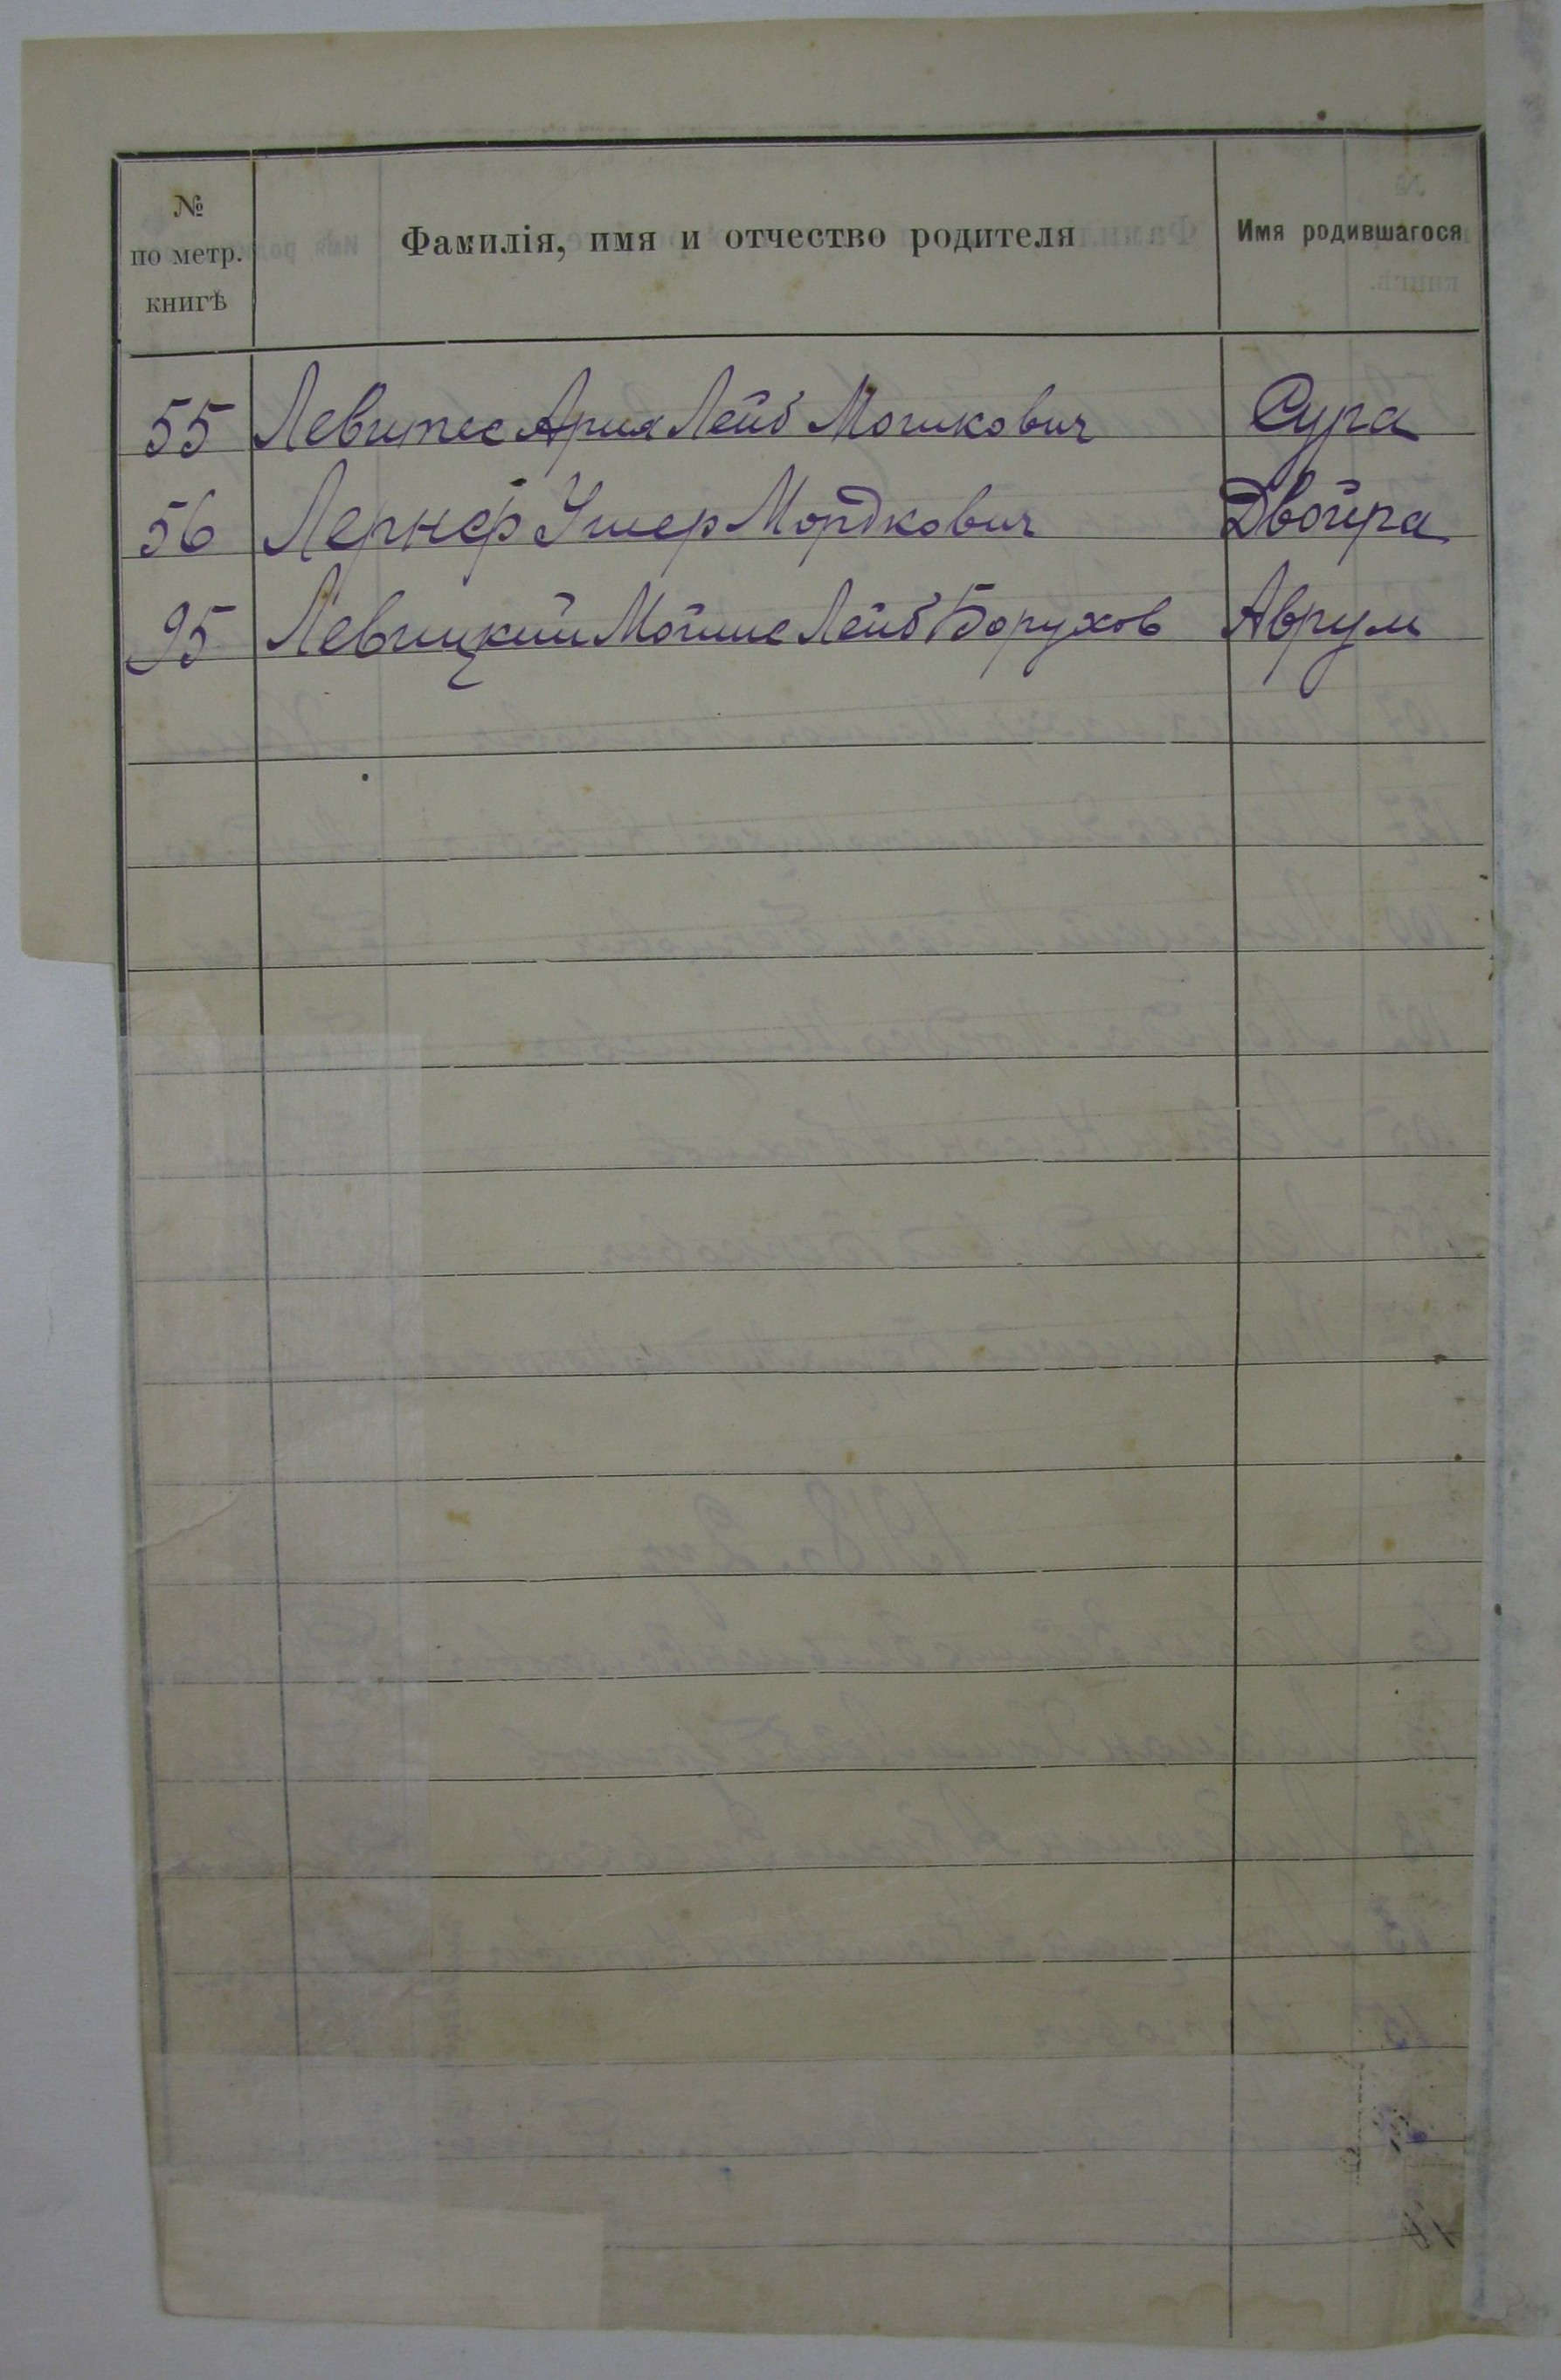 № по метр. книгѣ Фамилія, имя и отчество родителя Имя родившагося
55 Левитес Ария Лейб Мошкович Сура
56 Лернер Ушер Мордкович Двойра
95 Левицкий Мойше Лейб Борухов Аврум